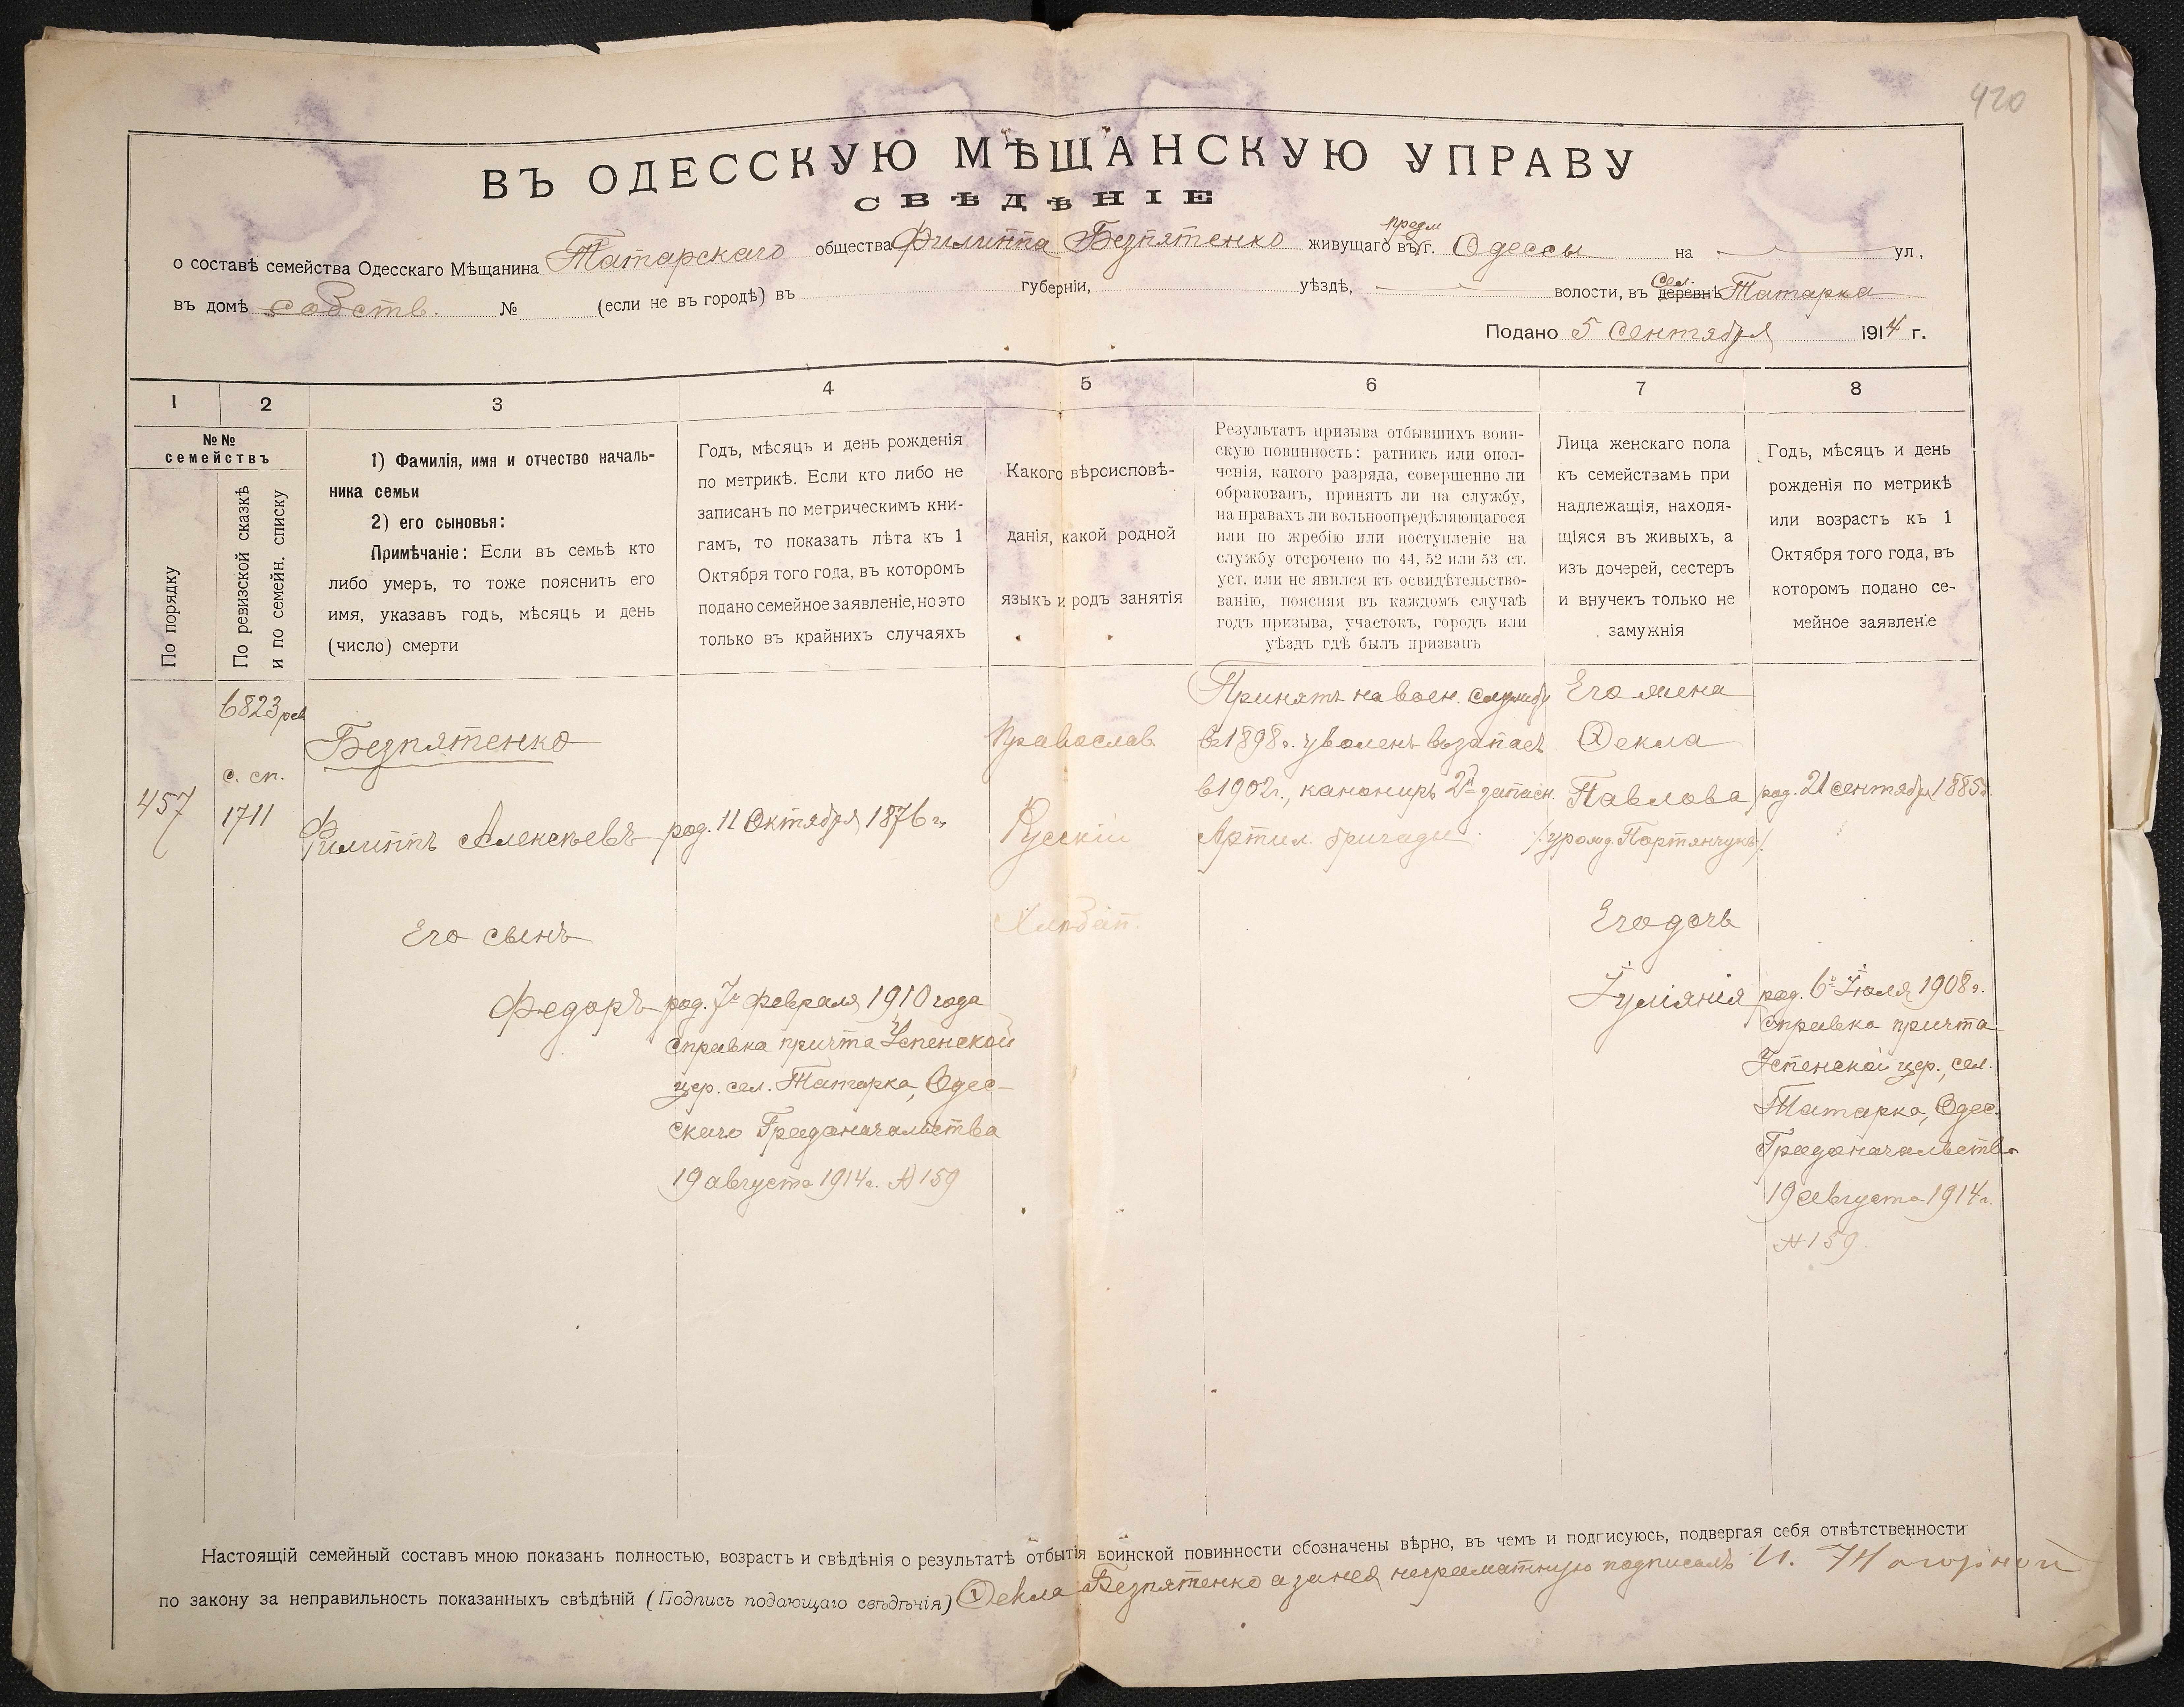 420
ВЪ ОДЕССКУЮ МѢЩАНСКУЮ УПРАВУ
СВѢДѢНІЕ
о составѣ семейства Одесскаго Мѣщанина Татарскаго общества Филиппа Безпятенко живущаго въ предм г. Одессы на ул.,
въ домѣ собств. № (если не въ городѣ) въ губерніи, уѣздѣ, волости, въ деревнѣ сел. Татарка
Подано 5 Сентября 1914 г.
1 2 3 4 5 6 7 8
№№ семействъ
По порядку
По ревизской сказкѣ
и по семейн. списку
1) Фамилія, имя и отчество началь-
ника семьи
2) его сыновья:
Примѣчаніе: Если въ семьѣ кто
либо умеръ, то тоже пояснить его
имя, указавъ годъ, мѣсяцъ и день
(число) смерти
Годъ, мѣсяцъ и день рожденія
по метрикѣ. Если кто либо не
записанъ по метрическимъ кни-
гамъ, то показать лѣта къ 1
Октября того года, въ которомъ
подано семейное заявленіе, но это
только въ крайнихъ случаяхъ
Какого вѣроисповѣ-
данія, какой родной
языкъ и родъ занятія
Результатъ призыва отбывшихъ воин-
скую повинность: ратникъ или опол-
ченія, какого разряда, совершенно ли
обракованъ, принятъ ли на службу,
на правахъ ли вольноопредѣляющагося
или по жребію или поступленіе на
службу отсрочено по 44, 52 или 53 ст.
уст. или не явился къ освидѣтельство-
ванію, поясняя въ каждомъ случаѣ
годъ призыва, участокъ, городъ или
уѣздъ гдѣ былъ призванъ
Лица женскаго пола
къ семействамъ при
надлежащія, находя-
щіяся въ живыхъ, а
изъ дочерей, сестеръ
и внучекъ только не
замужнія
Годъ, мѣсяцъ и день
рожденія по метрикѣ
или возрастъ къ 1
Октября того года, въ
которомъ подано се-
мейное заявленіе
457
6823 рев
с. сп.
1711
Безпятенко
Филиппъ Алексѣевъ
род. 11 Октября 1876 г.
Православ.
Русскій
Хлѣбоп.
Принятъ на воен. службу
въ 1898 г. уволенъ въ запасъ
в 1902 г., канониръ 2й запасн.
Артил. бригады.
Его жена
Ѳекла
Павлова
/урожд. Портянчукъ/.
род. 21 сентября 1885 г.
Его сынъ
Федоръ
род. 7го февраля 1910 года
Справка причта Успенской
цер. сел. Татарка, Одес-
скаго Градоначальства
19 августа 1914 г. № 159
Его дочь
Іуліянія
род. 6го Іюля 1908 г.
Справка причта
Успенской цер., сел.
Татарка, Одес.
Градоначальства
19 августа 1914 г.
№ 159.
Настоящій семейный составъ мною показанъ полностью, возрастъ и свѣдѣнія о результатѣ отбытія воинской повинности обозначены вѣрно, въ чемъ и подгисуюсь, подвергая себя отвѣтственности
по закону за неправильность показанныхъ свѣдѣній (Подпись подающаго свѣдѣнія) Ѳекла Безпятенко а за нея неграмотную подписалъ И.